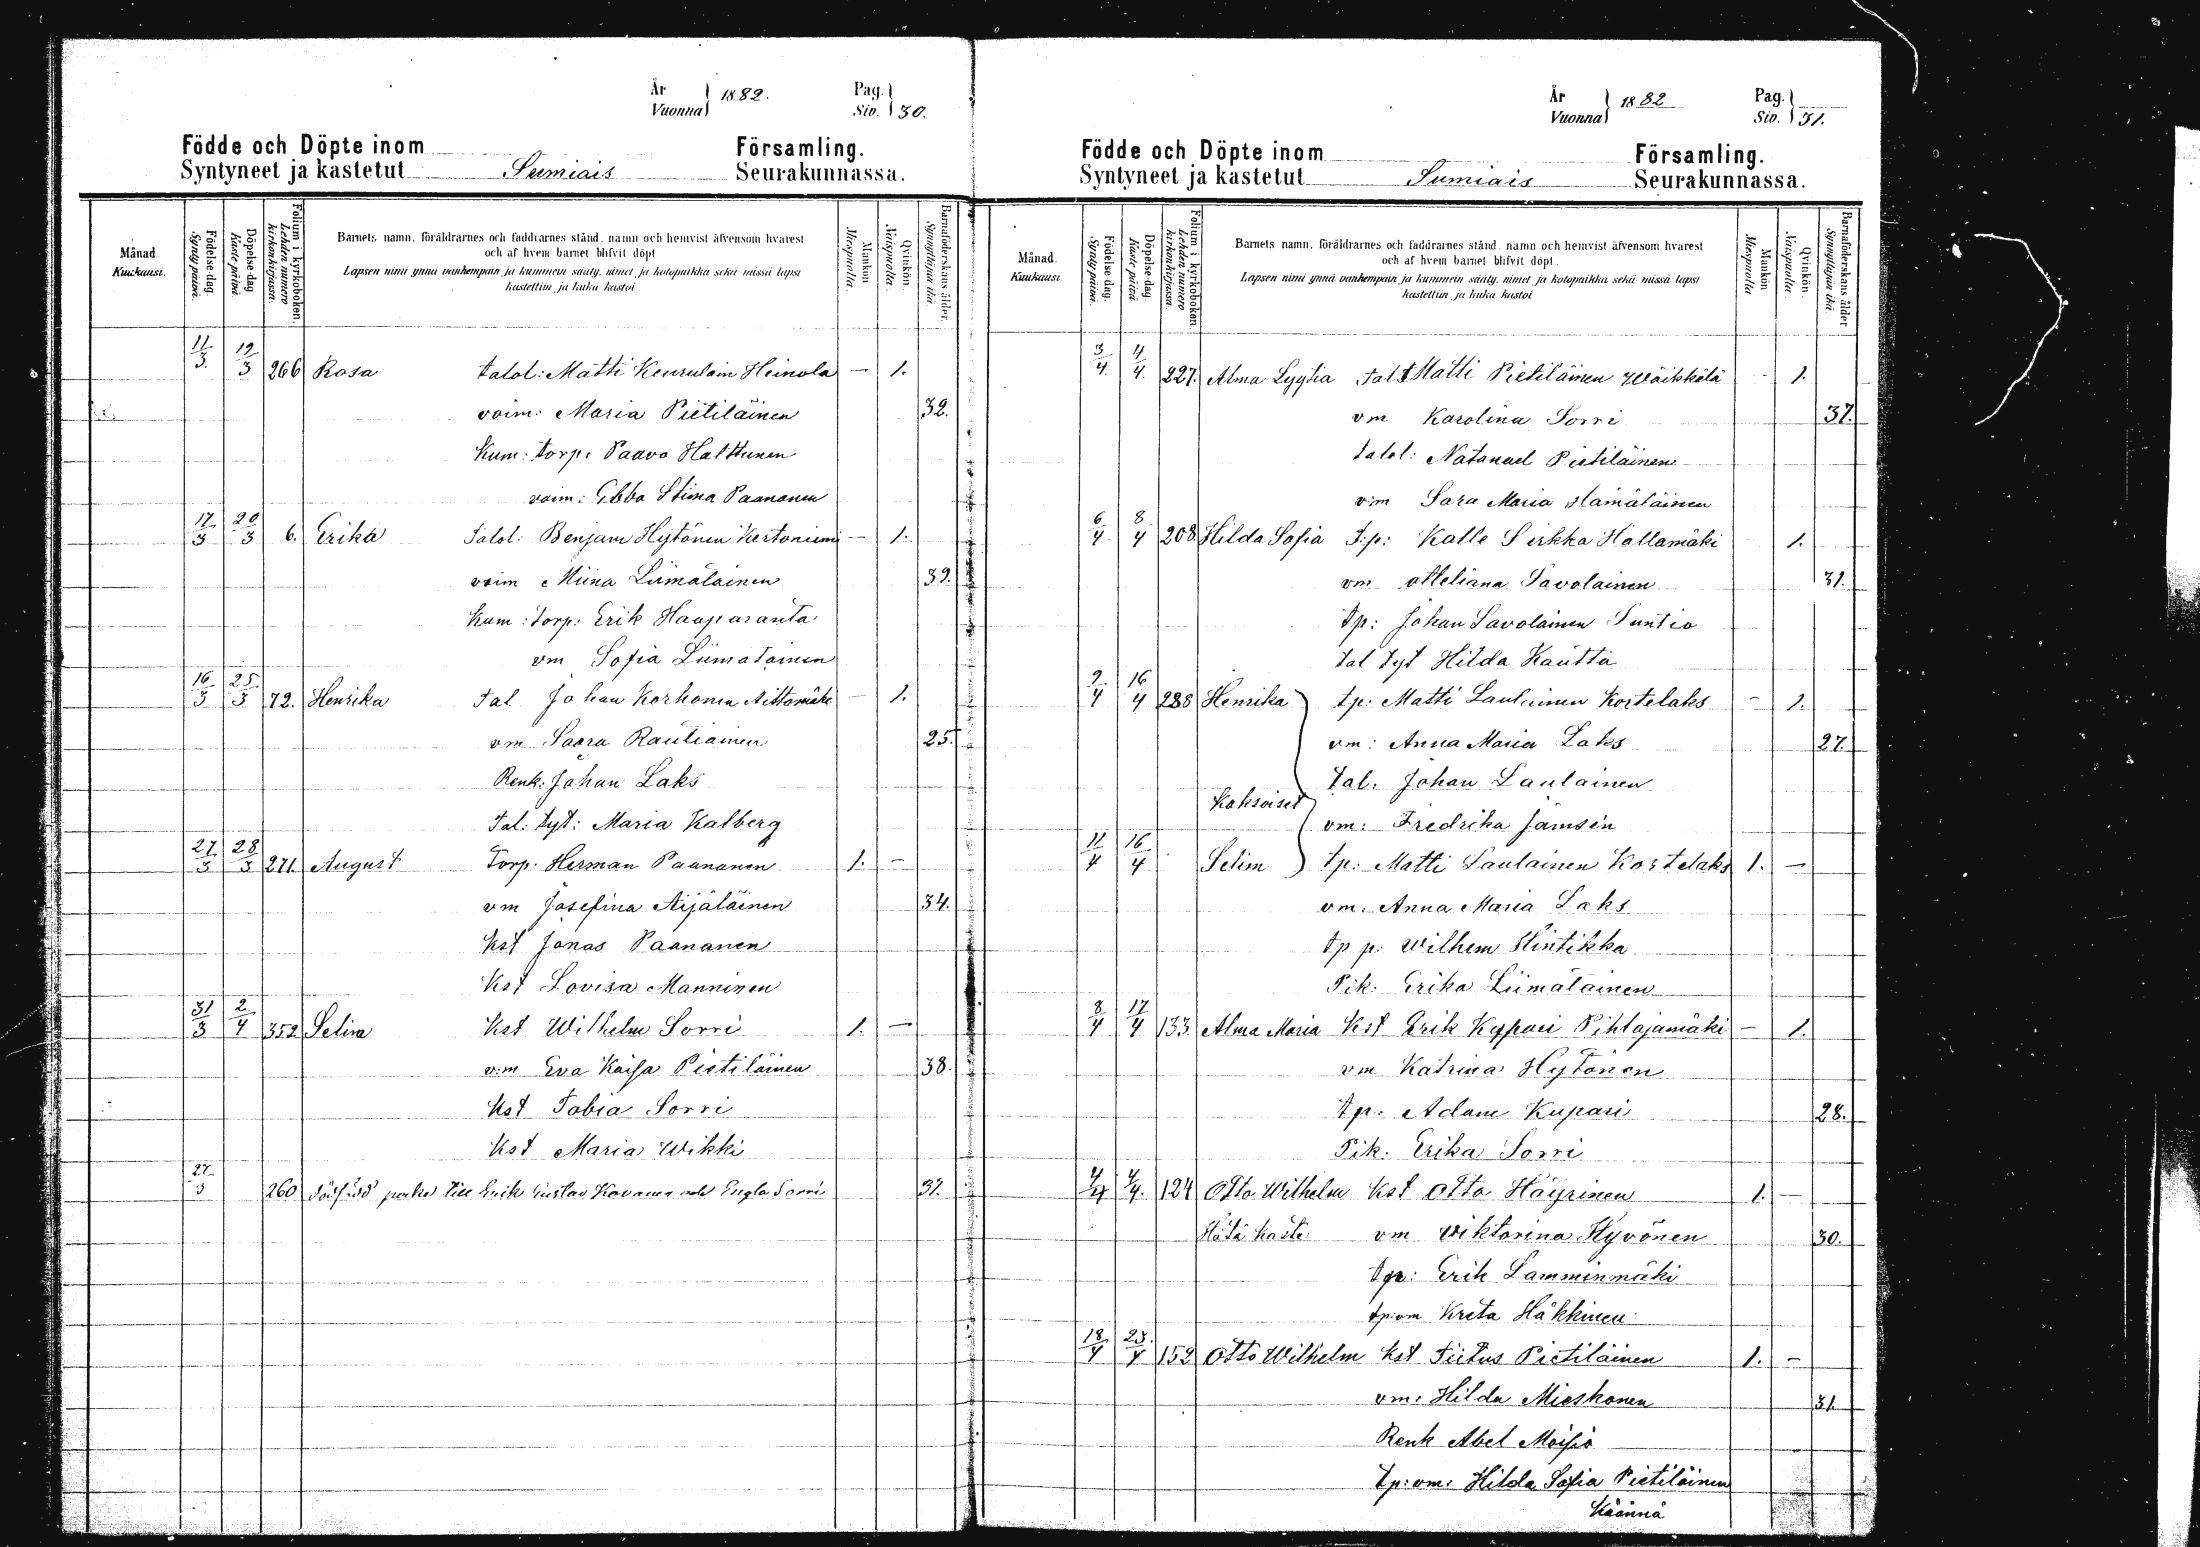 År
Vuonna 1882.
Pag.
Siv. 30.
Födde och Döpte inom Församling.
Syntyneet ja kastetut Sumiais Seurakunnassa.
Månad.
Kuukausi.
Födelse-dag.
Synty-päivä.
Döpelse-dag
Kaste-päivä.
Folium i kyrkoboken.
Lehden numero kirkonkirjassa.
Barnets namn, föräldrarnes och faddrarnes stånd, namn och hemvist äfvensom hvarest
och af hvem barnet blifvit döpt
Lapsen nimi ynnä vanhempain ja kummein sääty, nimet ja kotopaikka sekä missä lapsi
kastettiin ja kuka kastoi.
Mankön
Miespuolia.
Qvinkön
Naispuolia.
Barnaföderskans ålder.
Synnyttäjän ikä.
11/3. 19/3 266 Rosa talol: Matti Keurulain Heinola — 1.
voim: Maria Pietiläinen 32.
Kum: torp: Paavo Halttunen
voim: Ebba Stina Paananen
17/3 20/3 6. Erika Talol: Benjam Hytönen Kertoniemi — 1.
voim Miina Liimatainen 39.
Kum: torp: Erik Haaparanta
vm Sofia Liimatainen
16/3 25/3 72. Henrika Tal Johan Korhonen Aittomäki — 1.
vm Saara Rautiainen 25.
Renk: Johan Laks
Tal: tyt: Maria Kalberg
27/3 28/3 271. August Torp. Herman Paananen 1. —
vm Josefina Äijäläinen 34.
Kst Jonas Paananen
Kst Lovisa Manninen
31/3 2/4 352 Selim Kst Wilhelm Sorri 1. —
v:m Eva Kaisa Pietiläinen 38.
Kst Tobia Sorri
Kst Maria Wikki
27/3 260 dödfödd till Erik Gustav Kovanen och Engla Sorri 37.
År
Vuonna 1882
Pag.
Siv. 31.
Födde och Döpte inom Församling.
Syntyneet ja kastetut Sumiais Seurakunnassa.
Månad.
Kuukausi.
Födelse-dag.
Synty-päivä.
Döpelse-dag
Kaste-päivä
Folium i kyrkoboken.
Lehden numero kirkonkirjassa.
Barnets namn, föräldrarnes och faddrarnes stånd, namn och hemvist äfvensom hvarest
och af hvem barnet blifvit döpt.
Lapsen nimi ynnä vanhempain ja kummein sääty, nimet ja kotopaikka sekä missä lapsi
kastettiin ja kuka kastoi
Mankön
Miespuolia
Qvinkön
Naispuolia
Barnaföderskans ålder
Synnyttäjän ikä.
3/4. 4/4. 227. Alma Lyytia Tal Matti Pietiläinen Wäikkälä - 1.
vm Karolina Sorri 37.
talol: Natanael Pietiläinen
v:m Sara Maria Hämäläinen
6/4 8/4 208 Hilda Sofia T:p: Kalle Sirkka Hallamäki 1.
vm Heliana Savolainen 31.
tp: Johan Savolainen Suntio
tal tyt Hilda Kautta
9/4 16/4 288 Henrika tp: Matti Laulainen Kortelaks - 1.
vm: Anna Maria Laks 27.
Tal. Johan Laulainen
Kaksoiset
vm: Fredrika Jämsén
11/4 16/4 Selim tp: Matti Laulainen Kortelaks 1. —
vm. Anna Maria Laks
tp p: Wilhem Hintikka
Pik: Erika Liimatainen
8/4 17/4 133 Alma Maria Kst Erik Kypari Pihlajamäki — 1.
vm Katriina Hytönen
tp: Adam Kupari 28.
Pik. Erika Sorri
4/4 4/4. 124 Otto Wilhelm Kst Otto Häyrinen 1. —
Hätä kaste vm Wiktorina Hyvönen 30.
tp: Erik Lamminmäki
tp:vm Kreta Häkkinen
18/4 23/4 152 Otto Wilhelm Kst Tiitus Pietiläinen 1. -
vm: Hilda Mieskonen 31
Renk Abel Moisio
tp:vm: Hilda Sofia Pietiläinen
Käännä